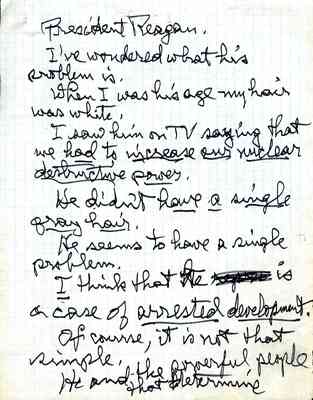 President Reagan.
I've wondered what his
problem is.
When I was his age my hair
was white.
I saw him on TV saying that
we had to increase our nuclear
destructive power.
He didn't have a single
gray hair.
He seems to have a single
problem.
I think that he is
a case of arrested development.
Of course, it is not that
simple.
He and the powerful people
that determine